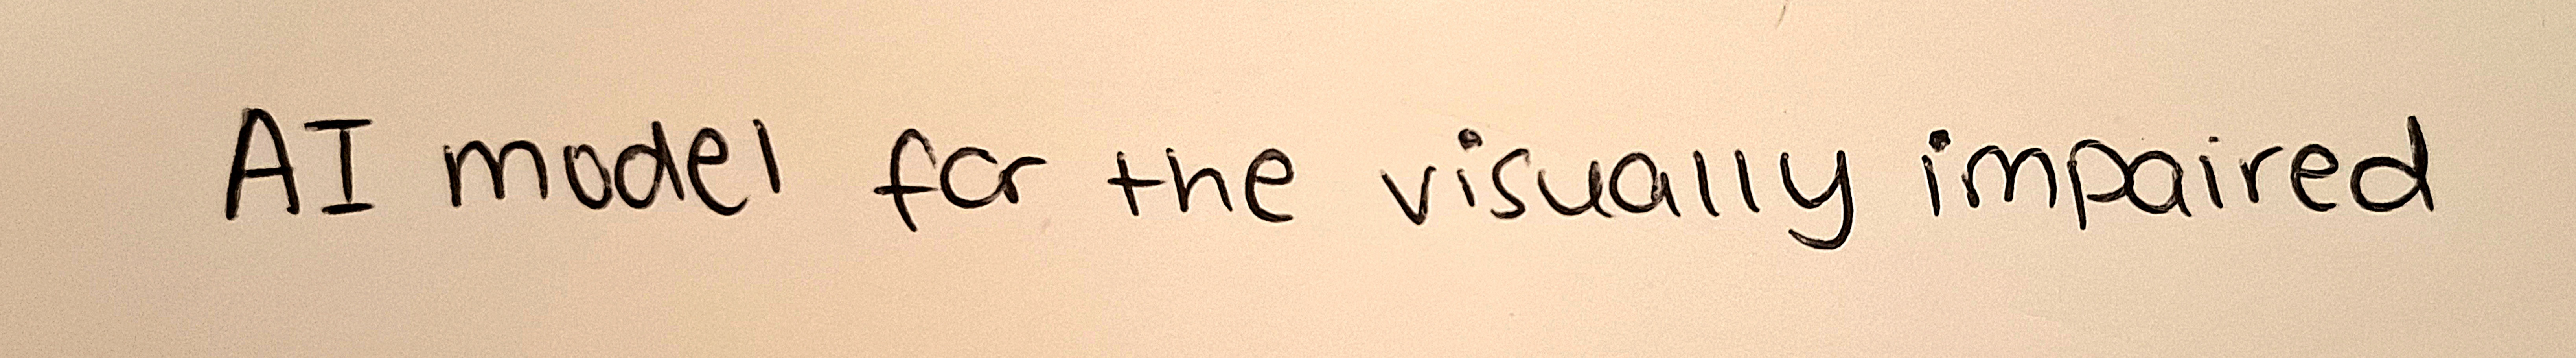 AI model for the visually impaired